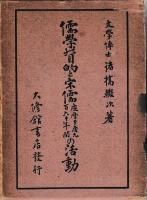 文學博士 諸橋轍次著
儒學の目的と宋儒慶曆至慶元百六十年間の活動
大修館書店發行